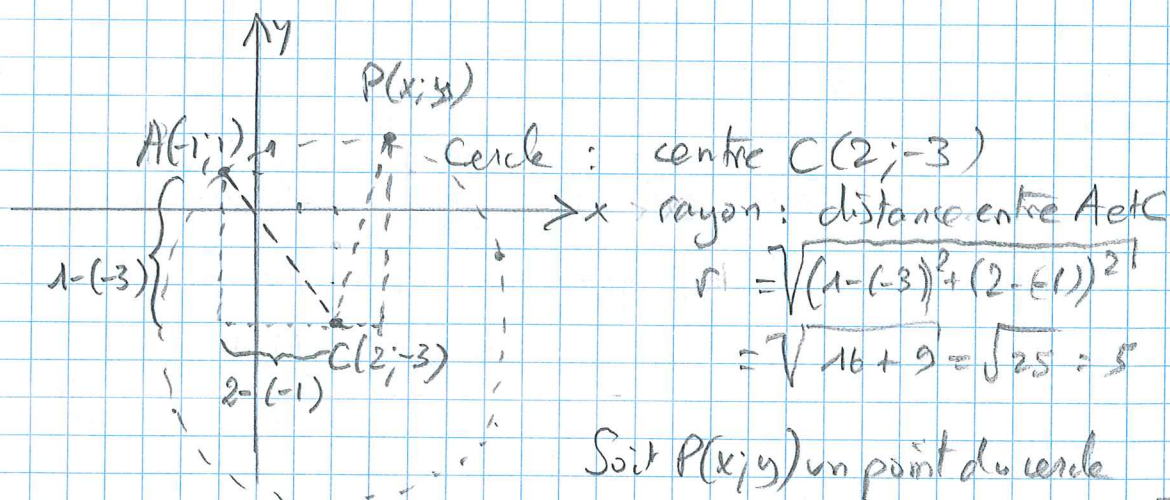 y
P(x;y)
A(-1;1) 1
Cercle : centre C(2;-3)
x rayon : distance entre A et C
1-(-3)
r = √((1-(-3))² + (2-(-1))²)
C(2;-3)
= √(16 + 9) = √25 = 5
2-(-1)
Soit P(x;y) un point du cercle